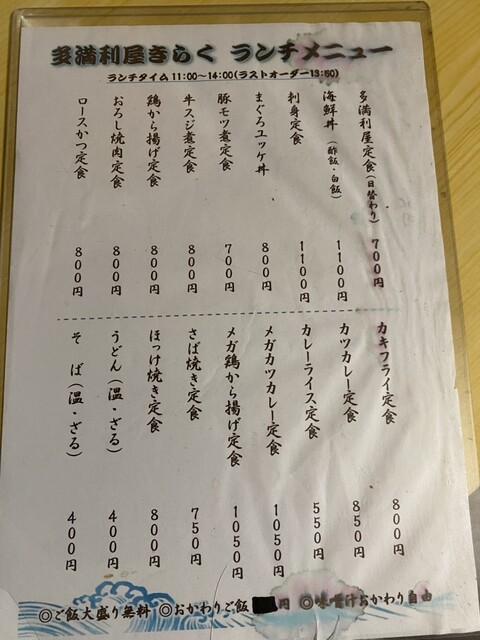 多満利屋きらく ランチメニュー
ランチタイム 11:00～14:00(ラストオーダー13:50)
多満利屋定食(日替わり) 700円
海鮮丼 (酢飯・白飯) 1100円
刺身定食 1100円
まぐろユッケ丼 800円
豚モツ煮定食 700円
牛スジ煮定食 800円
鶏から揚げ定食 800円
おろし焼肉定食 800円
ロースかつ定食 800円
カキフライ定食 800円
カツカレー定食 850円
カレーライス定食 550円
メガカツカレー定食 1050円
メガ鶏から揚げ定食 1050円
さば焼き定食 750円
ほっけ焼き定食 800円
うどん(温・ざる) 400円
そば(温・ざる) 400円
◎ご飯大盛り無料 ◎おかわりご飯 円 ◎味噌汁おかわり自由